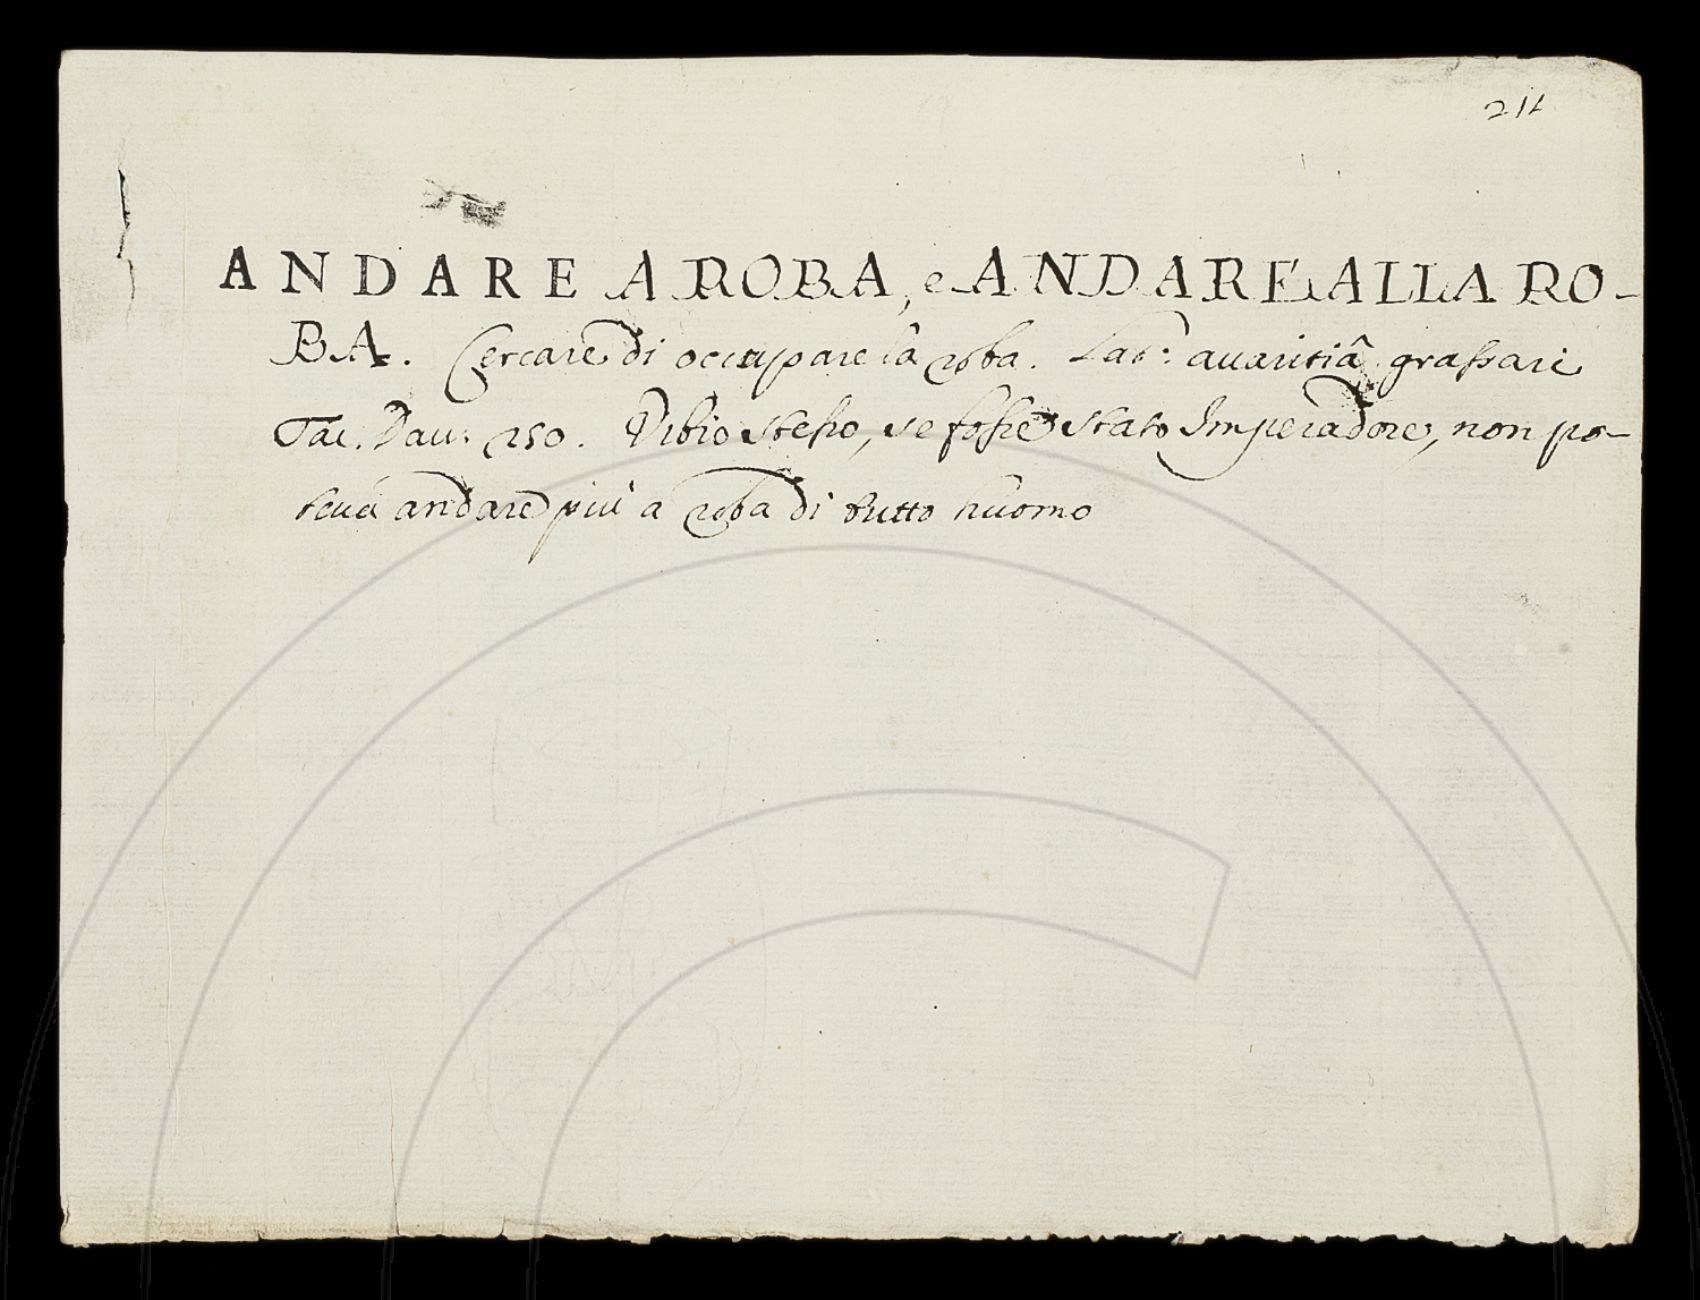 211
ANDARE A ROBA, e ANDARE ALLA RO-
BA. Cercare di occupare la roba. Lat: auaritiâ grassari
Tac. Dau: 250. Vibio stesso, se fosse stato Imperadore, non po-
teua andare più a roba di tutto huomo